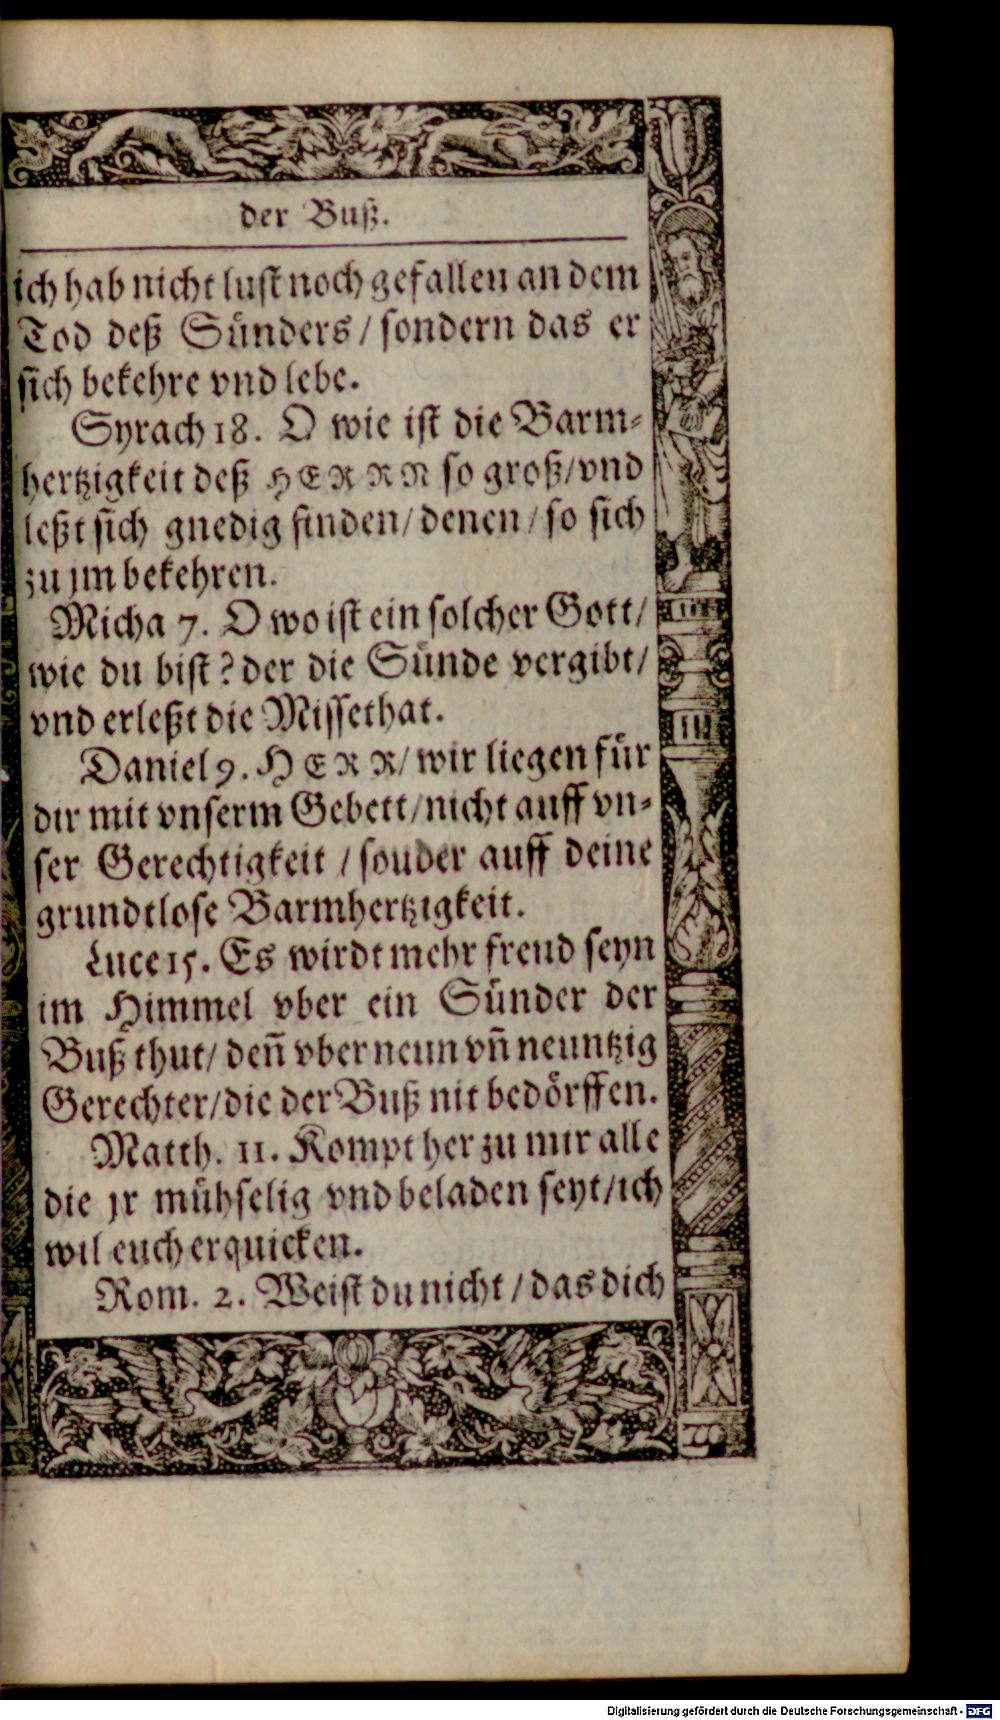 der Buß.
ich hab nicht lust noch gefallen an dem
Tod deß Sünders / sondern das er
sich bekehre vnd lebe.
Syrach 18. O wie ist die Barm-
hertzigkeit deß HERRN so groß / vnd
leßt sich gnedig finden / denen / so sich
zu jm bekehren.
Micha 7. O wo ist ein solcher Gott /
wie du bist? der die Sünde vergibt /
vnd erleßt die Missethat.
Daniel 9. HERR / wir liegen für
dir mit vnserm Gebett / nicht auff vn-
ser Gerechtigkeit / souder auff deine
grundtlose Barmhertzigkeit.
Luce 15. Es wirdt mehr freud seyn
im Himmel vber ein Sünder der
Buß thut / deñ vber neun vñ neuntzig
Gerechter / die der Buß nit bedörffen.
Matth. 11. Kompt her zu mir alle
die jr mühselig vnd beladen seyt / ich
wil euch erquicken.
Rom. 2. Weist du nicht / das dich
Digitalisierung gefördert durch die Deutsche Forschungsgemeinschaft - DFG